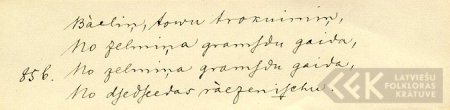 Bàeliņ, towu trokumiņ,
No zelmiņa gramſdu gaida,
856. No zelmiņa gramſdu gaida,
No dſedſedas ràezeniſchu.
LATVIEŠU
FOLKLORAS
KRĀTUVE